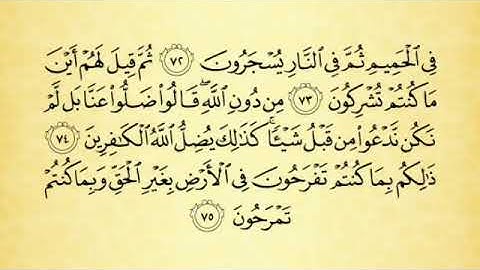 فِي ٱلْحَمِيمِ ثُمَّ فِي ٱلنَّارِ يُسْجَرُونَ ٧٢ ثُمَّ قِيلَ لَهُمْ أَيْنَ
مَا كُنتُمْ تُشْرِكُونَ ٧٣ مِن دُونِ ٱللَّهِۖ قَالُوا۟ ضَلُّوا۟ عَنَّا بَل لَّمْ
نَكُن نَّدْعُوا۟ مِن قَبْلُ شَيْـًٔاۚ كَذَٰلِكَ يُضِلُّ ٱللَّهُ ٱلْكَـٰفِرِينَ ٧٤
ذَٰلِكُم بِمَا كُنتُمْ تَفْرَحُونَ فِي ٱلْأَرْضِ بِغَيْرِ ٱلْحَقِّ وَبِمَا كُنتُمْ
تَمْرَحُونَ ٧٥